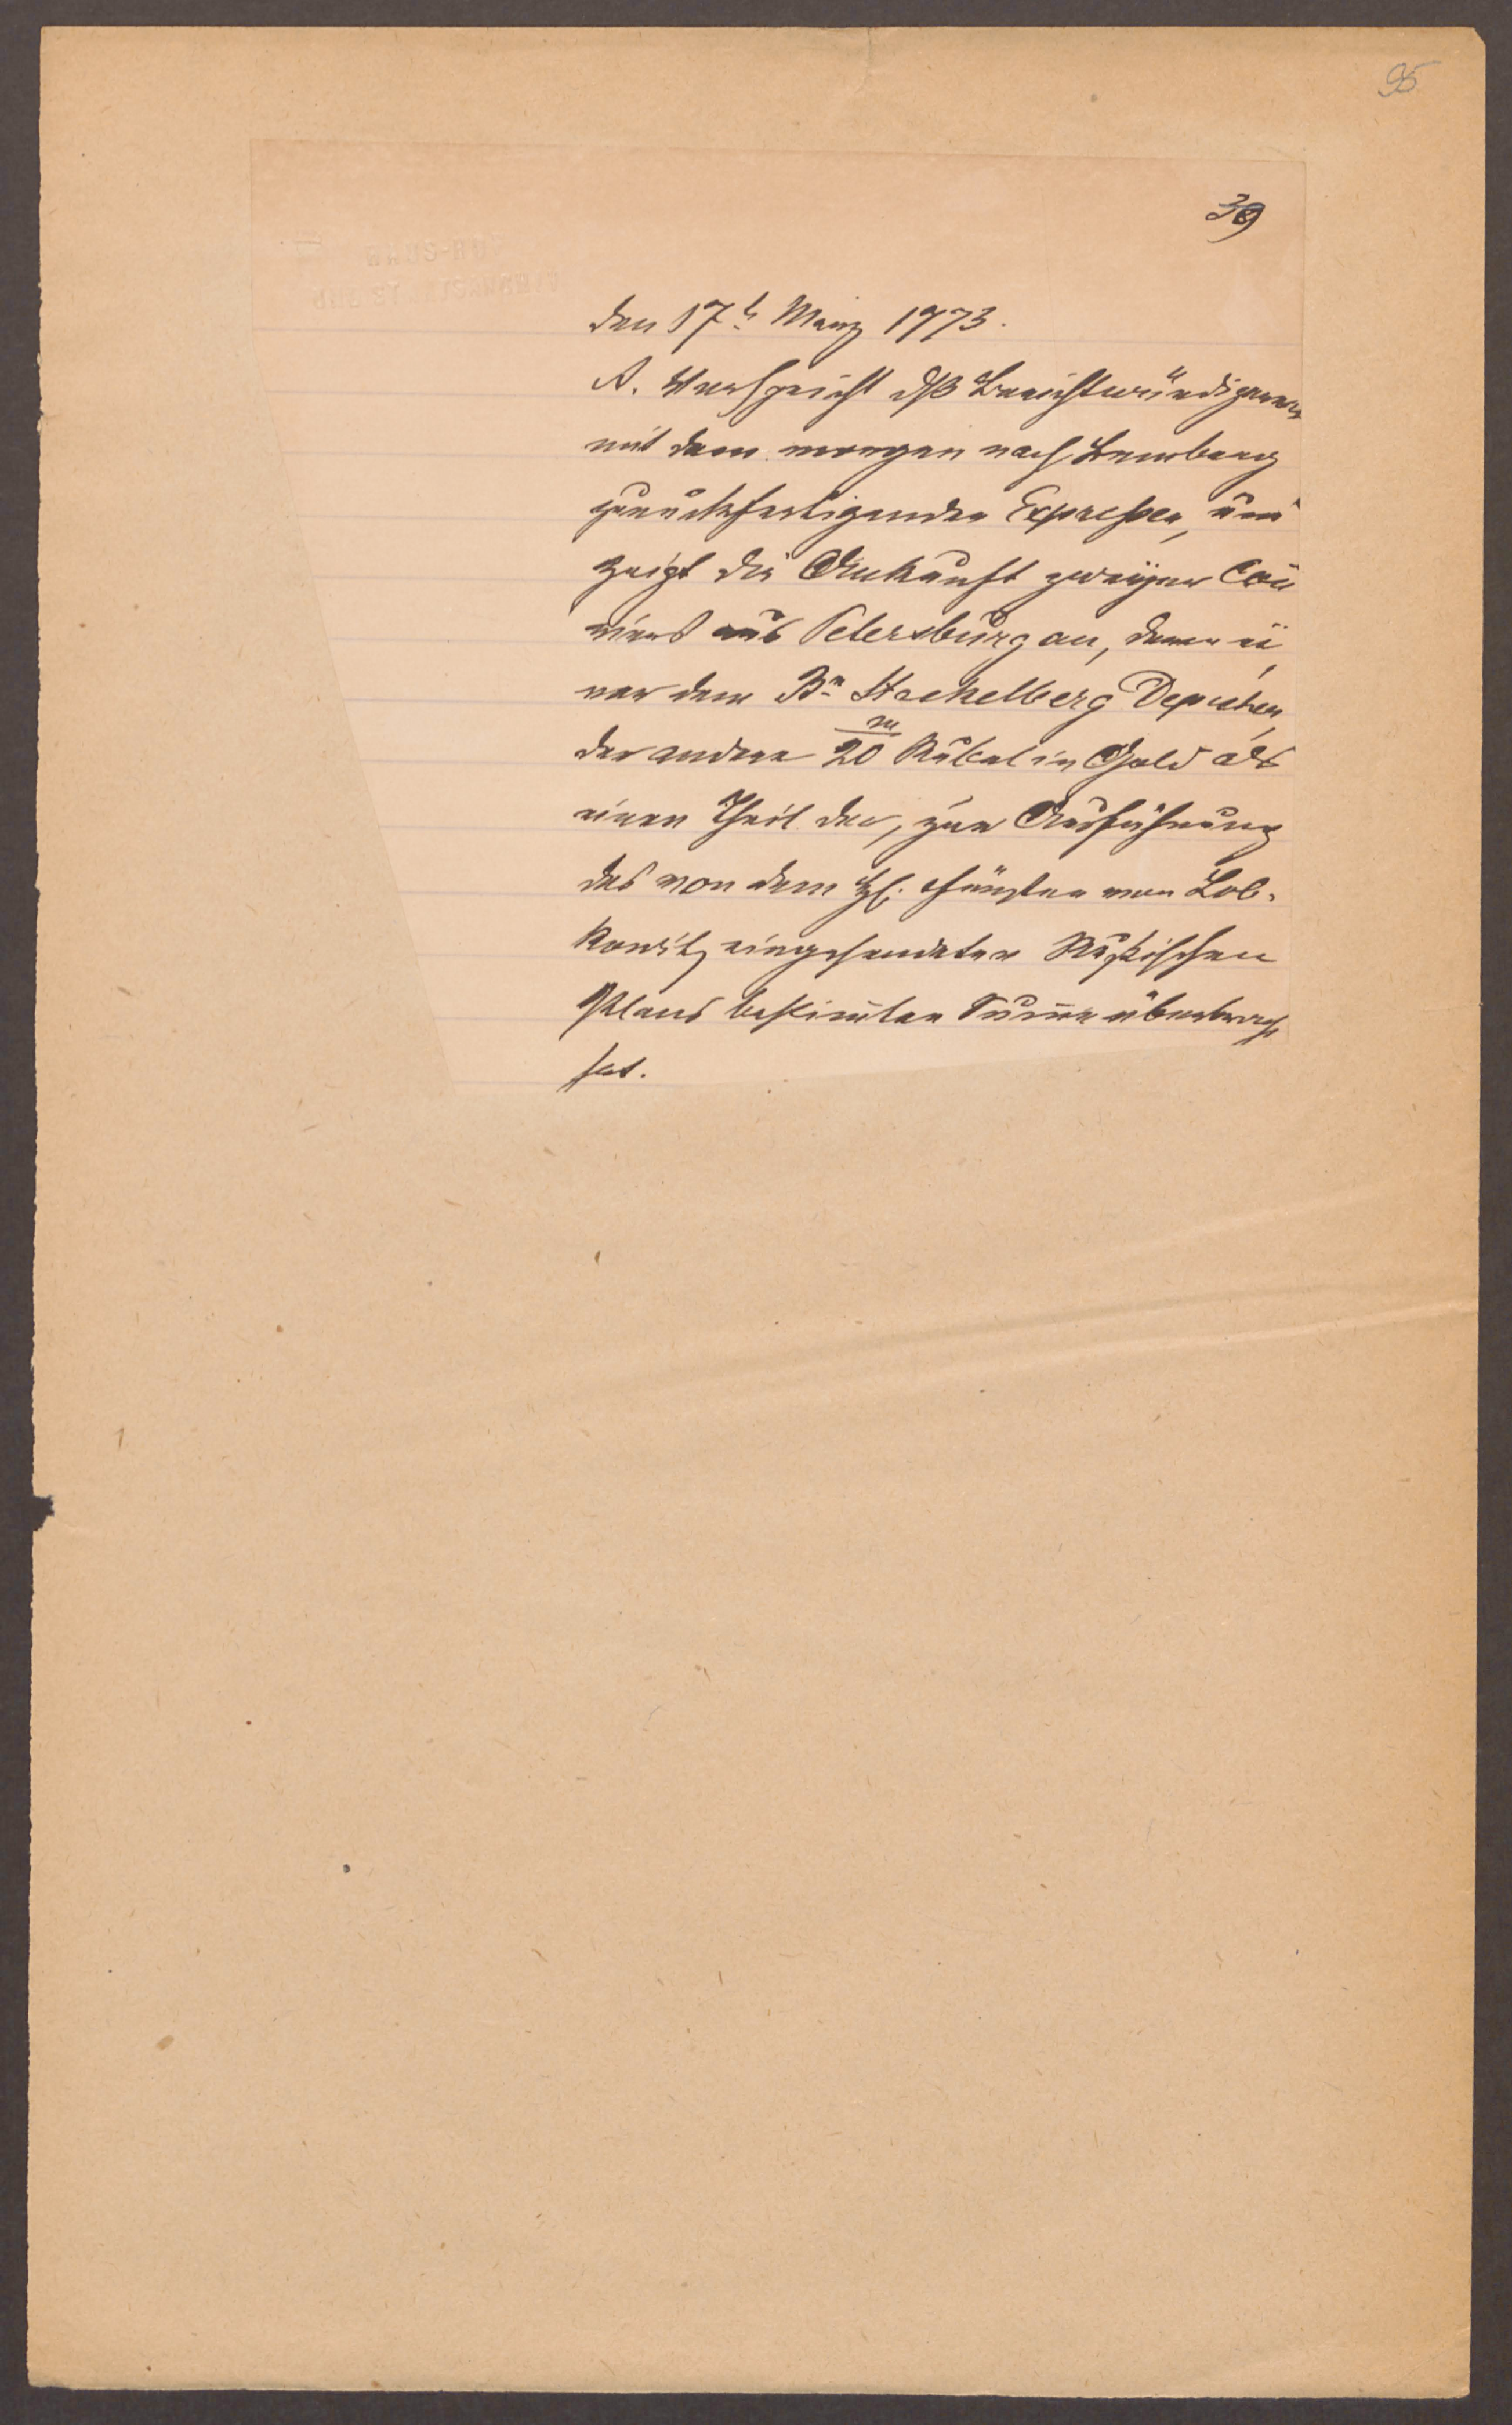 95
39
den 17t. März 1773.
A. Verspricht dß Berichtwürdigere
mit dem morgen nach Lemberg
zurückfertigenden Expreßen, und
zeigt die Ankunft zweyer Cou
riers aus Petersburg an, deren ei
ner dem Bn Stackelberg Depechen,
der andere 20 m Rubel in Gold als
einen Theil der, zur Ausführung
des von dem H. Fürsten von Lob-
kowitz eingesendeten Rußischen
Plans bestimten Summe überbracht
hat.